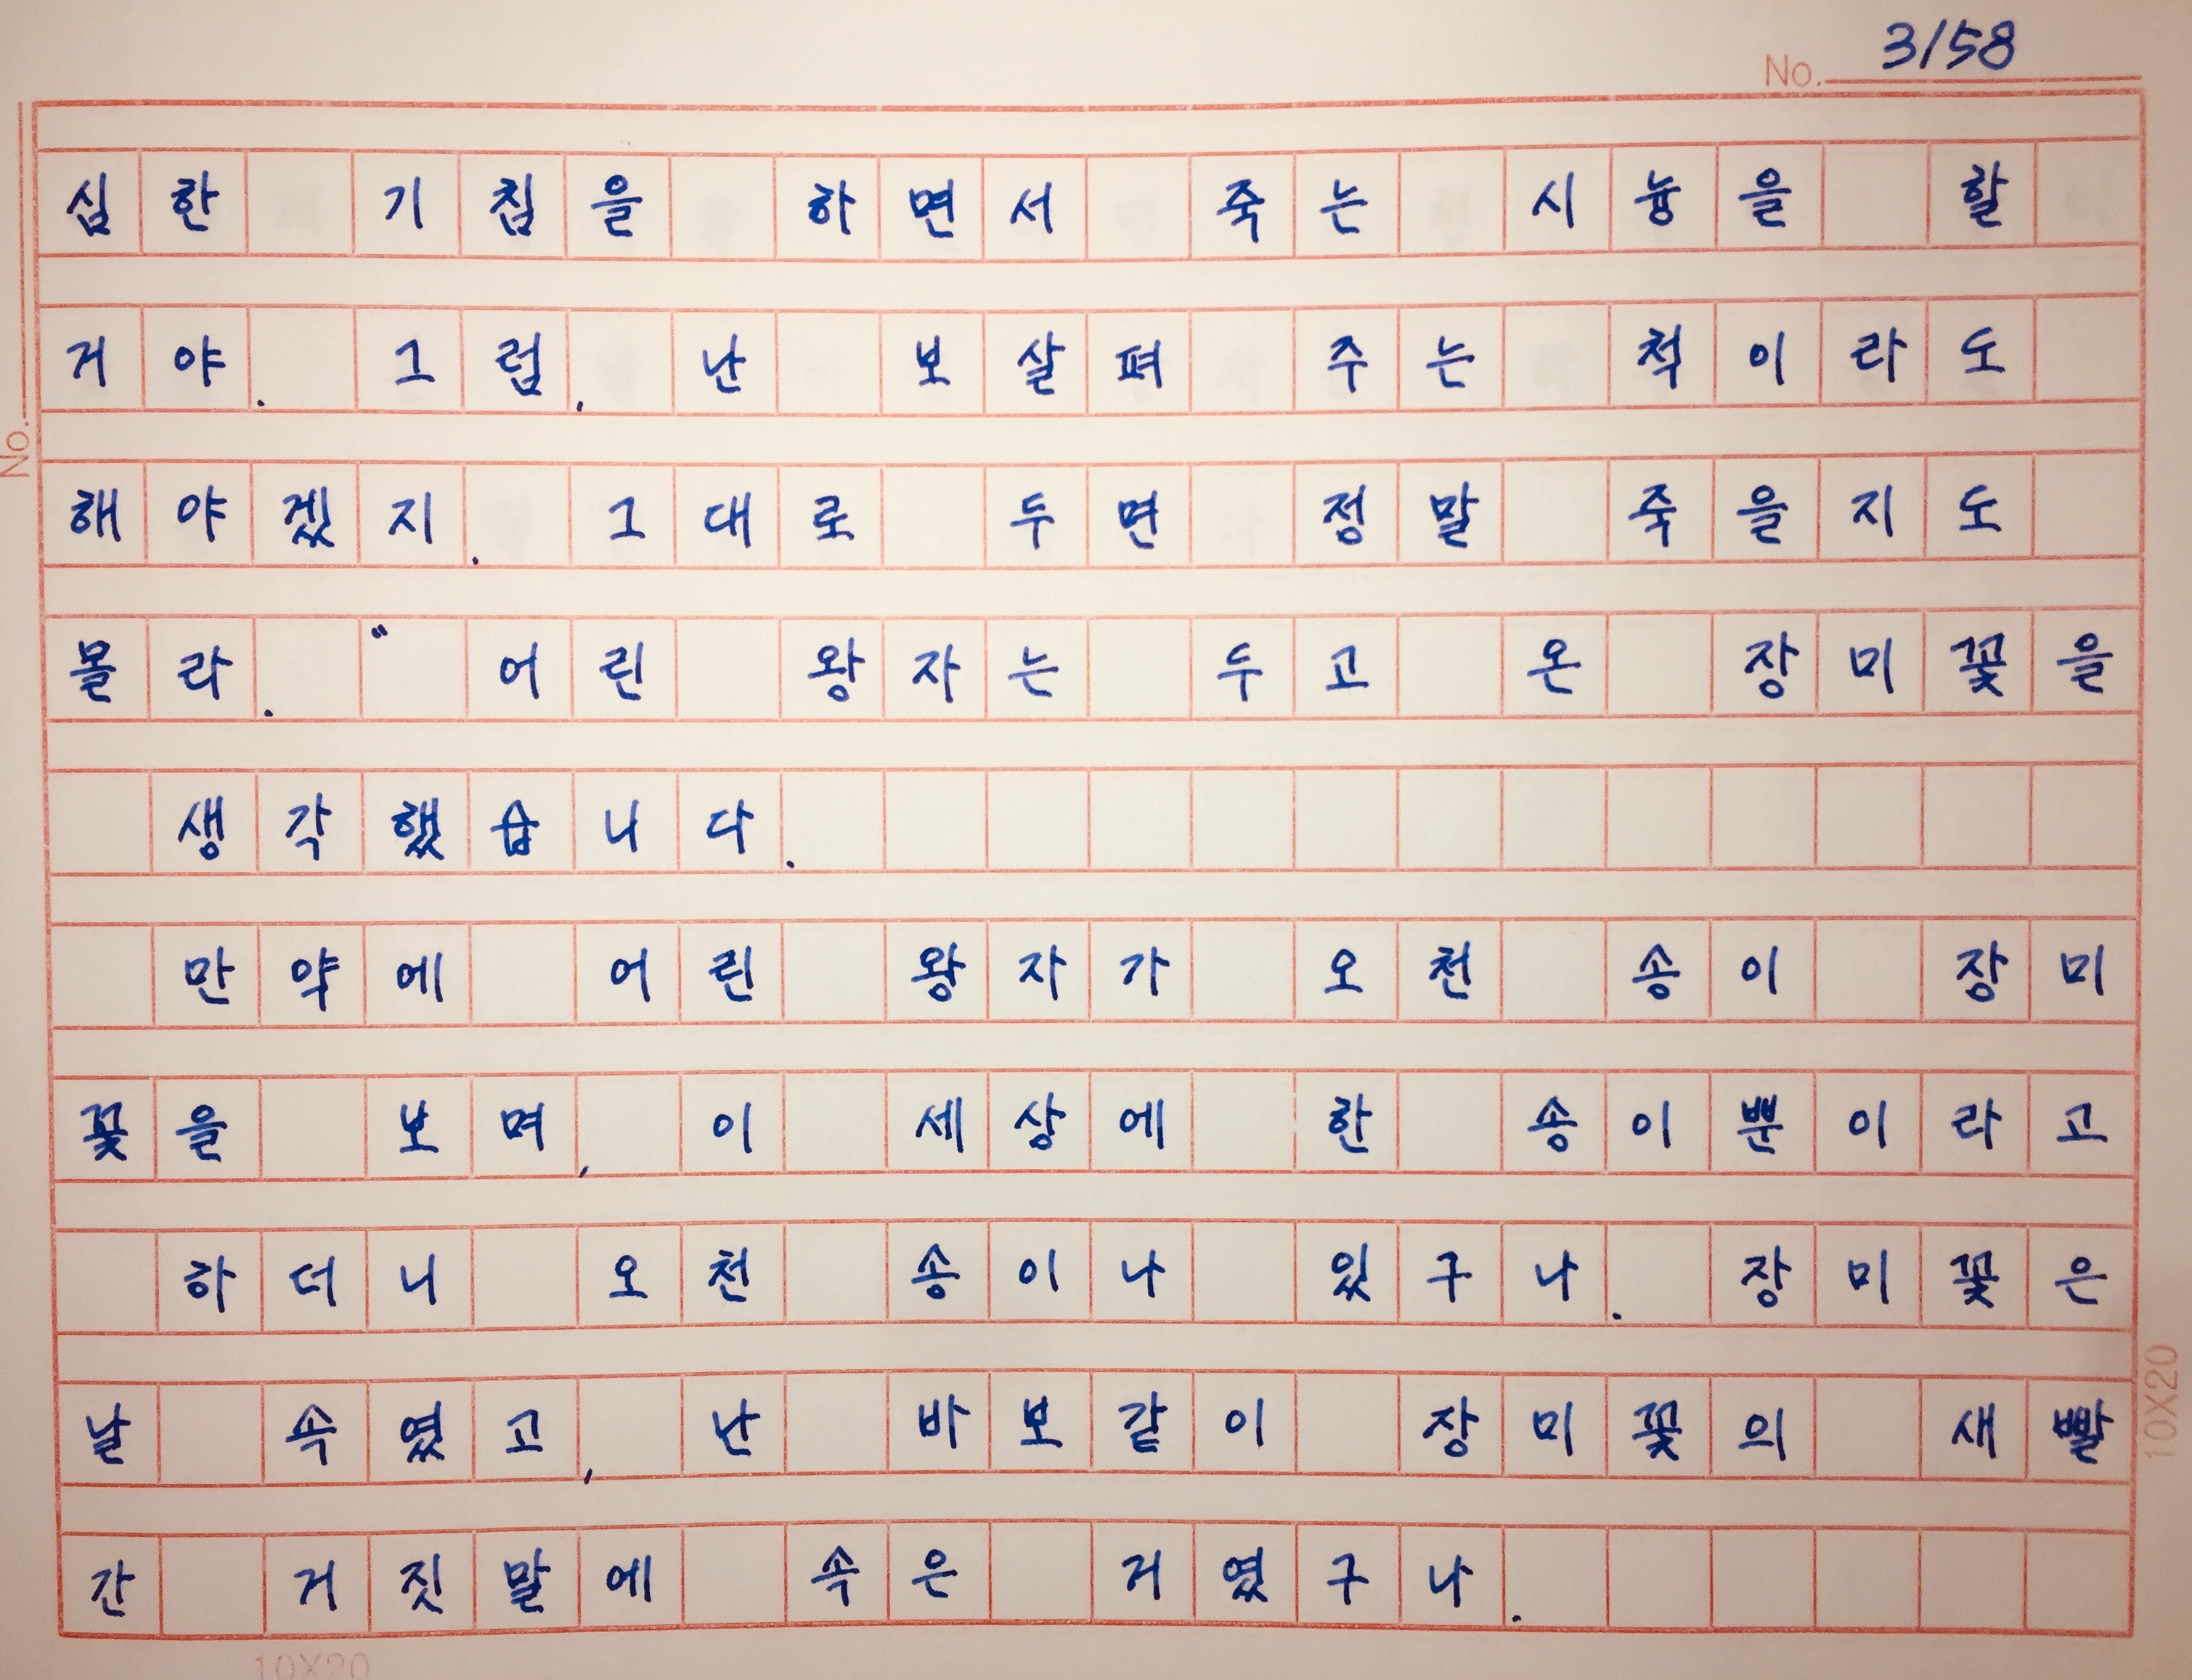 No. 3/58
심한 기침을 하면서 죽는 시늉을 할
거야. 그럼, 난 보살펴 주는 척이라도
해야겠지. 그대로 두면 정말 죽을지도
몰라. " 어린 왕자는 두고 온 장미꽃을
생각했습니다.
만약에 어린 왕자가 오천 송이 장미
꽃을 보며, 이 세상에 한 송이뿐이라고
하더니 오천 송이나 있구나. 장미꽃은
날 속였고, 난 바보같이 장미꽃의 새빨
간 거짓말에 속은 거였구나.
No.
10X20
10X20